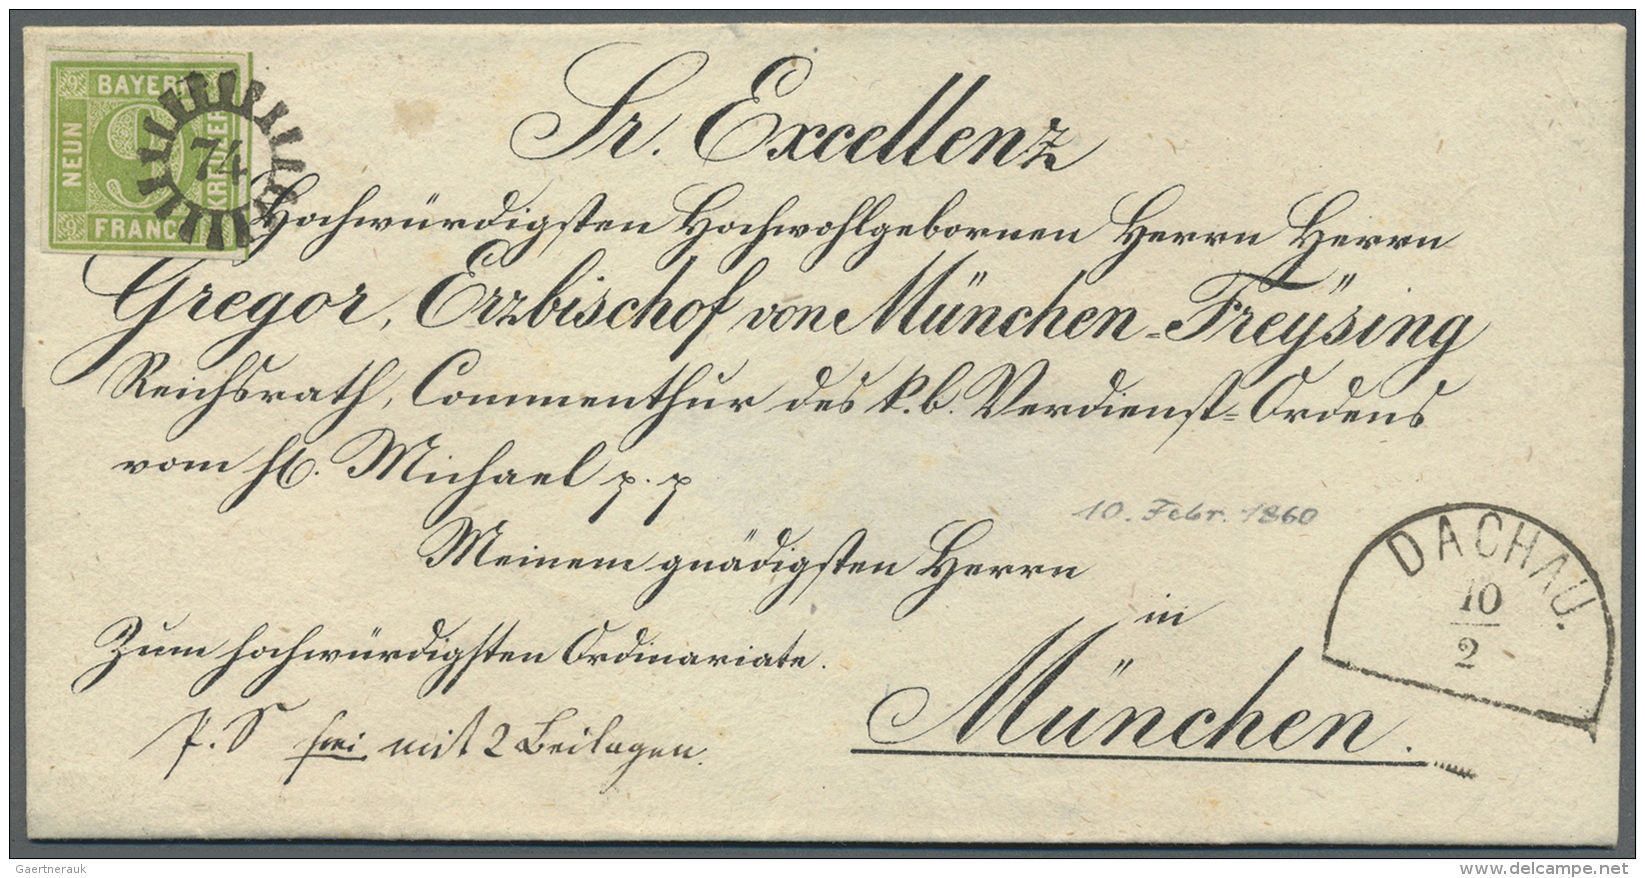 BAYERN
NEUN
9
KREUZER
FRANCO
74
Sr. Excellenz
Hochwürdigsten Hochwohlgebornen Herrn Herrn
Gregor, Erzbischof von München-Freÿsing
Reichsrath, Commenthur des k. b. Verdienst-Ordens
vom hl. Michael p. p
10. Febr. 1860
Meinem gnädigsten Herrn
DACHAU.
10
2
in
Zum hochwürdigsten Ordinariate.
München.
P. S frei mit 2 Beilagen.
Gaertnerauk
www.delcampe.net